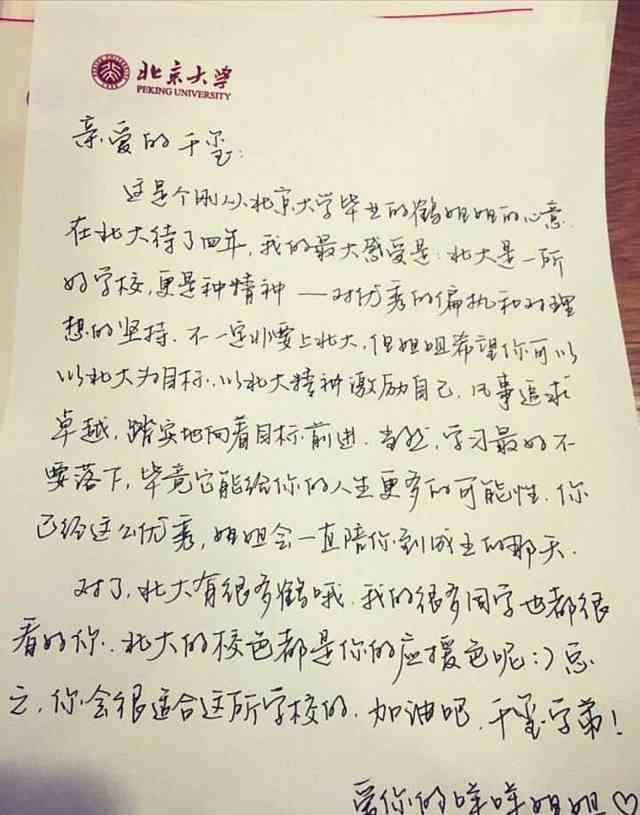 北京大学
PEKING UNIVERSITY
亲爱的千玺:
这是个刚从北京大学毕业的鹤姐姐的心意.
在北大待了四年,我的最大感受是:北大是一所
好学校,更是种精神——对优秀的偏执和对理
想的坚持.不一定非要上北大,但姐姐希望你可以
以北大为目标,以北大精神激励自己,凡事追求
卓越,踏实地向着目标前进.当然,学习最好不
要落下,毕竟它能给你的人生更多的可能性.你
已经这么优秀,姐姐会一直陪你到成王的那天.
对了,北大有很多鹤哦.我的很多同学也都很
看好你.北大的校色都是你的应援色呢:)总
之,你会很适合这所学校的.加油吧,千玺学弟!
爱你的咩咩姐姐♡